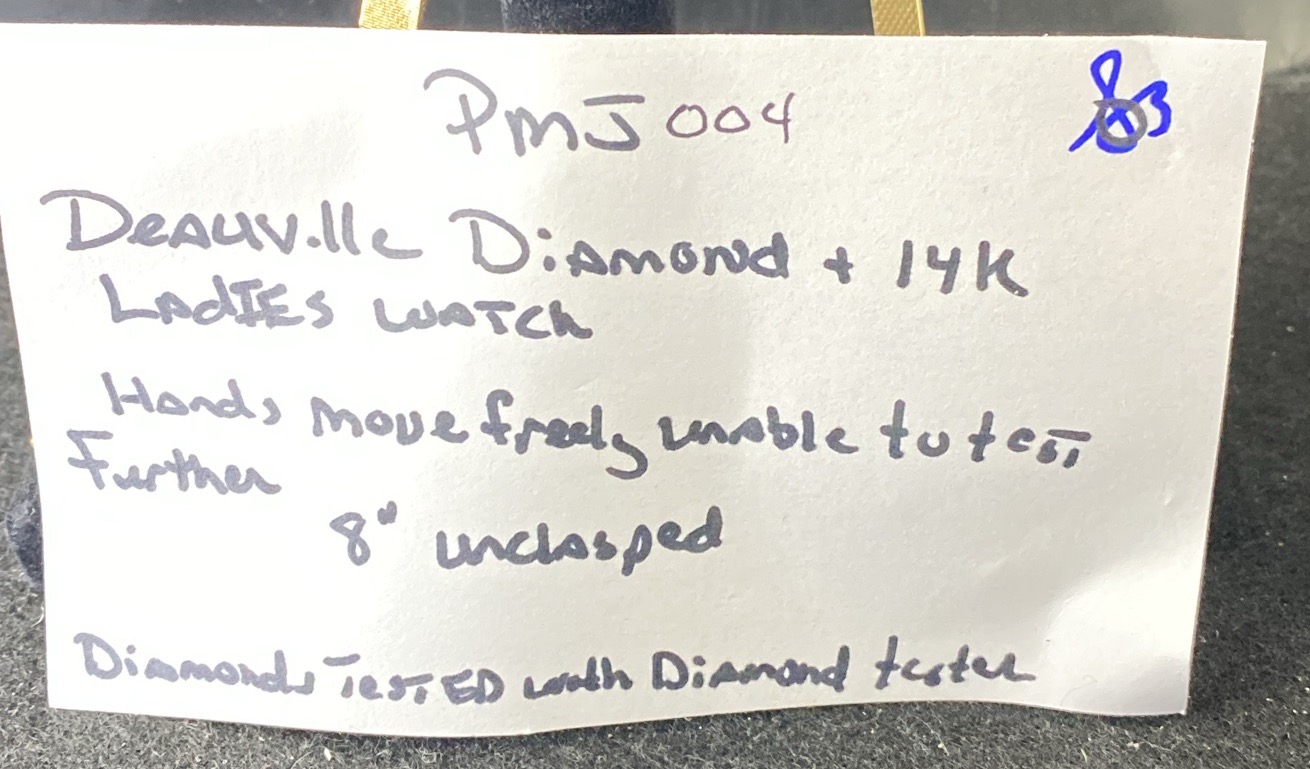 PMJ 004
Deauville Diamond + 14K
Ladies watch
Hands move freely unable to test
Further
8" unclasped
Diamonds TesTED with Diamond tester